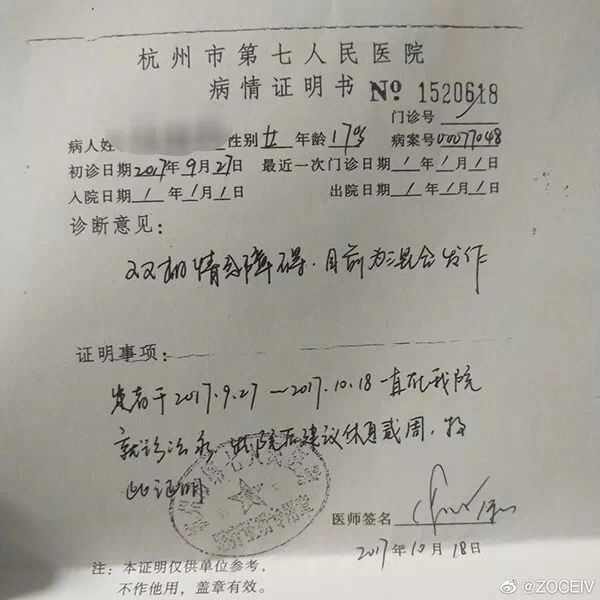 杭州市第七人民医院
病情证明书 № 1520618
门诊号 /
病人姓 性别 女 年龄 17岁 病案号 00077048
初诊日期 2017年9月27日 最近一次门诊日期 /年/月/日
入院日期 /年/月/日 出院日期 /年/月/日
诊断意见：
双相情感障碍.目前为混合发作
证明事项：
患者于2017.9.27—2017.10.18一直在我院
就诊治疗 出院后建议休息贰周，特
此证明
医师签名
2017年10月18日
注：本证明仅供单位参考，
不作他用，盖章有效。
@ZOCEIV